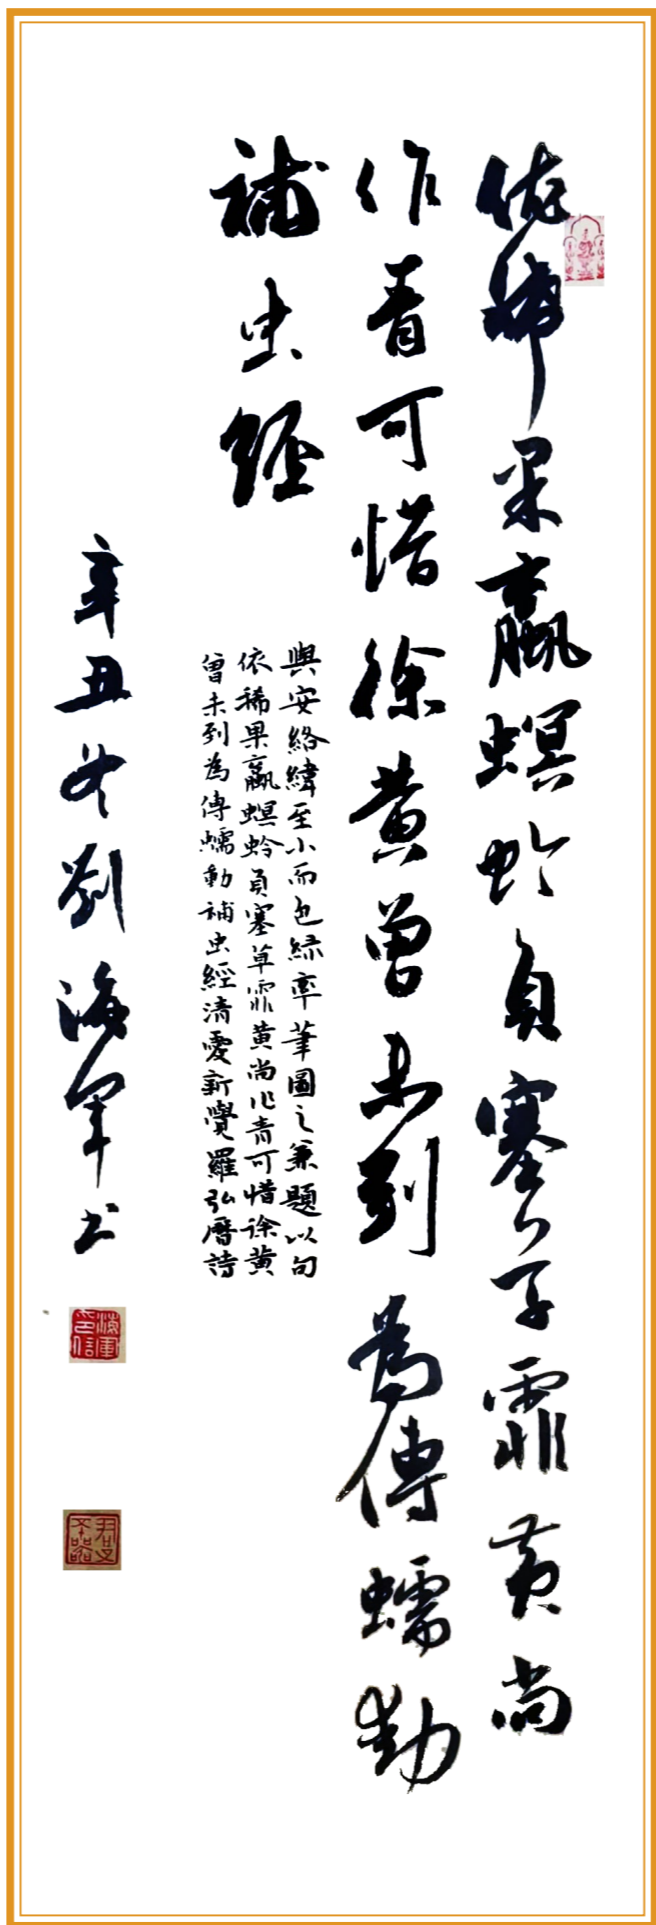 依稀果蠃螟蛉負塞草霏黃尚
作青可惜徐黃曾未到為傳蠕動
補虫經
與安絡緯至小而色綠率筆圖之兼題以句
依稀果蠃螟蛉負塞草霏黃尚作青可惜徐黃
曾未到為傳蠕動補虫經清愛新覺羅弘曆詩
辛丑冬劉海軍書
海軍印信
君子不器